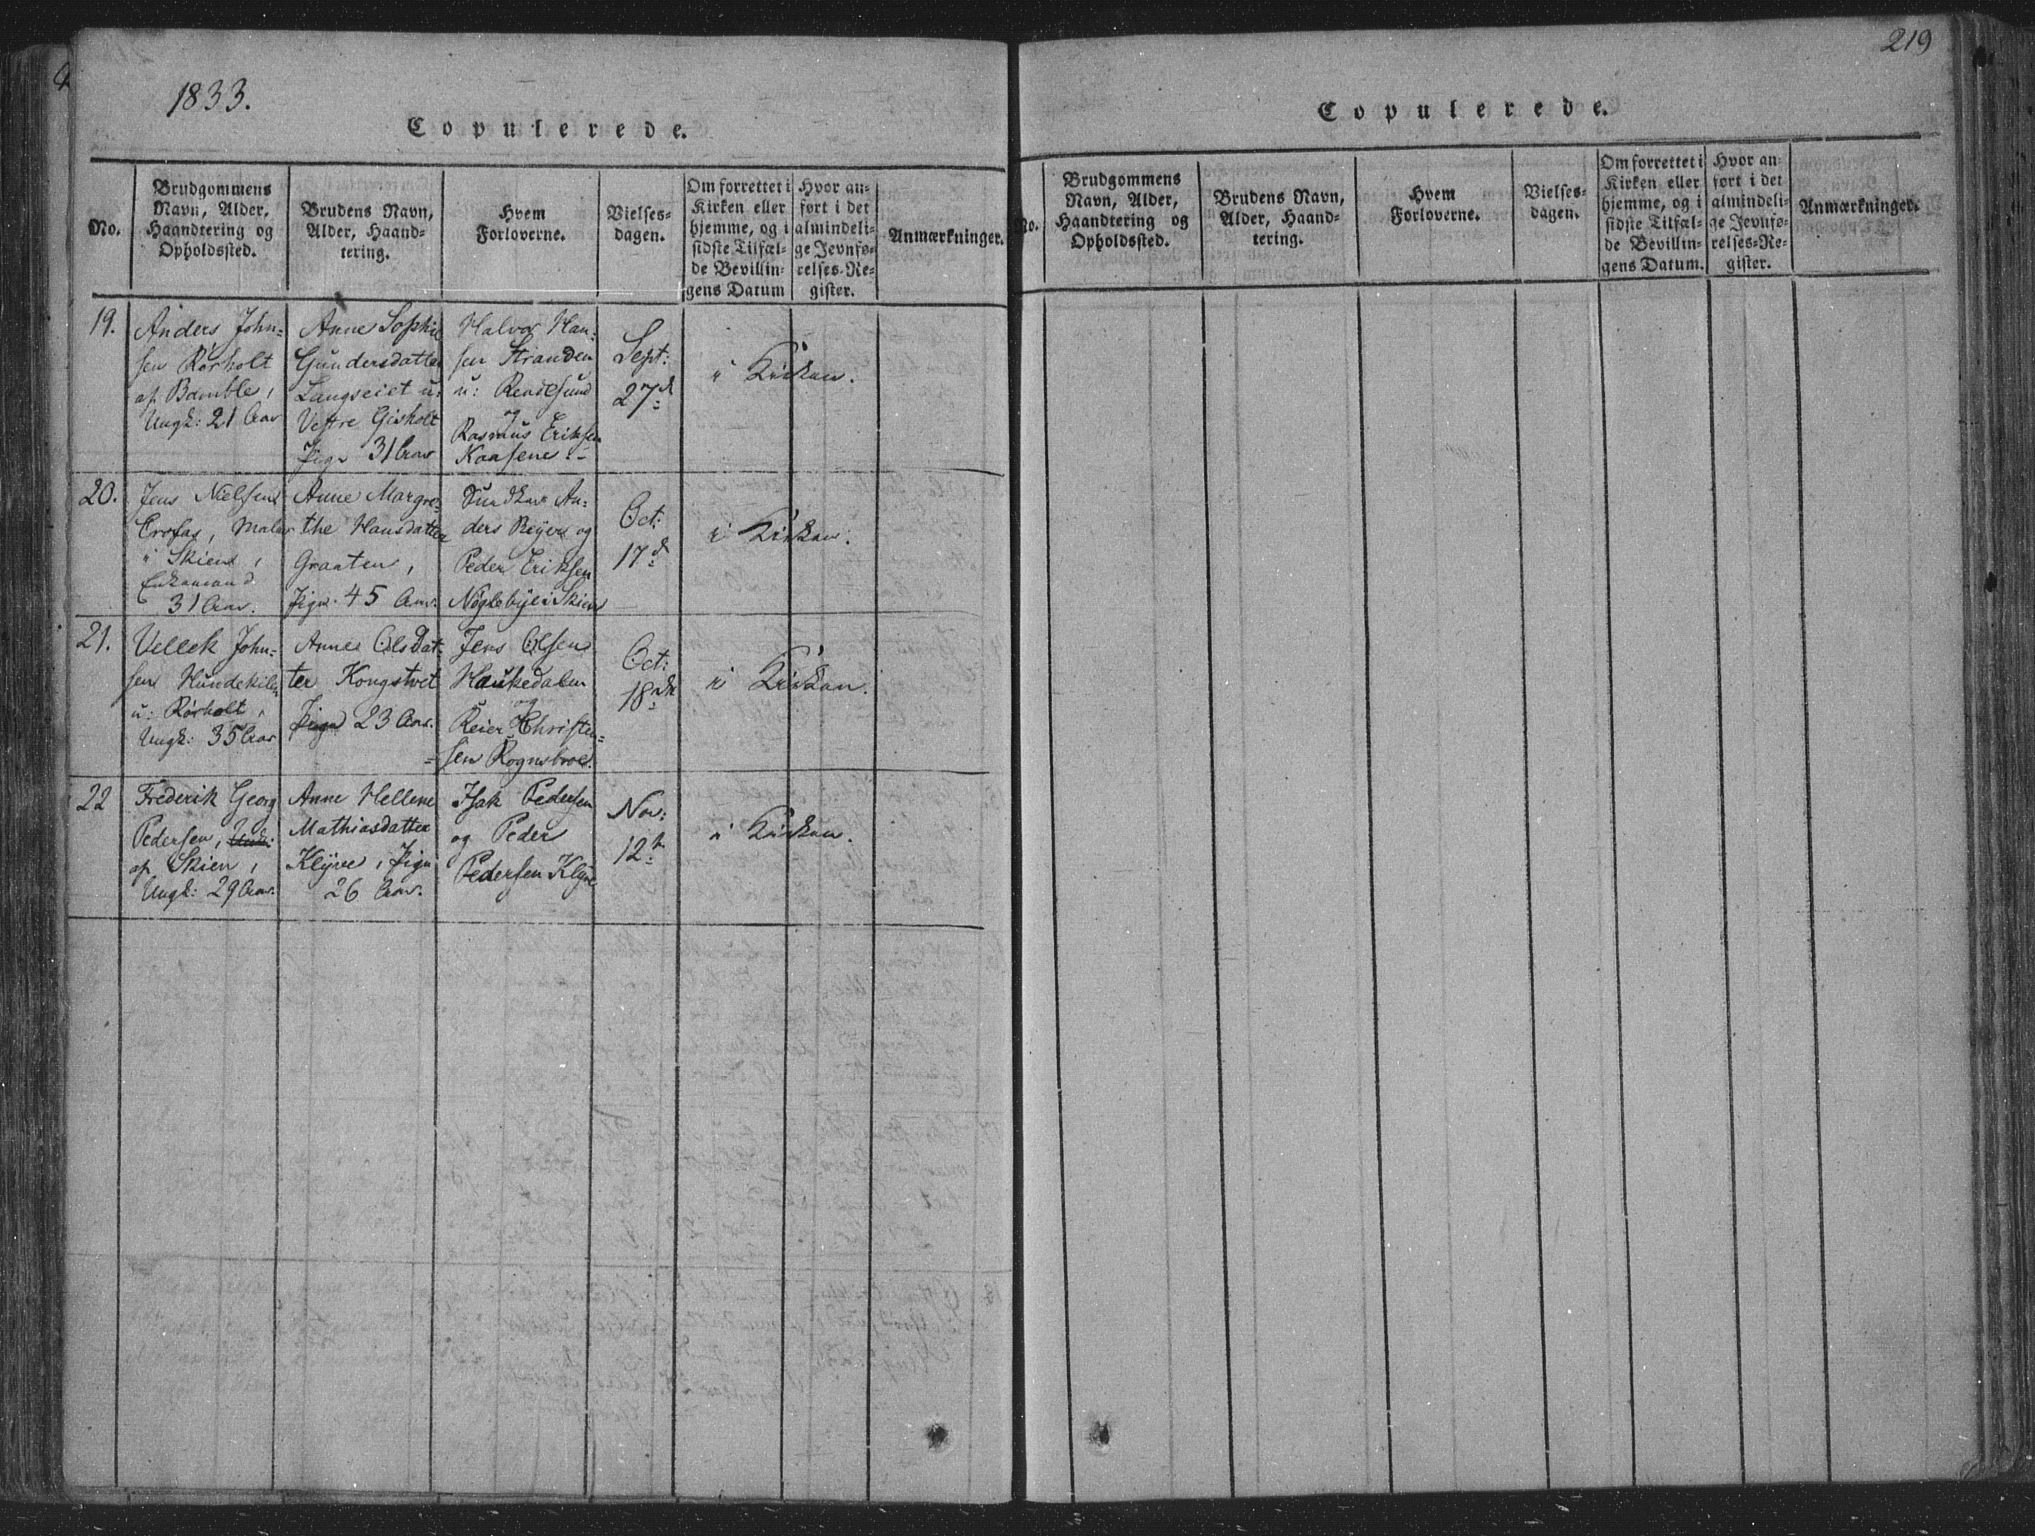 1833.
Copulerede.
No.
Brudgommens
Navn, Alder,
Haandtering og
Opholdssted.
Brudens Navn,
Alder, Haand-
tering.
Hvem
Forloverne.
Vielses-
dagen.
Om forrettet i
Kirken eller
hjemme, og i
sidste Tilfæl-
de Bevillin-
gens Datum
Hvor an-
ført i det
almindeli-
ge Jevnfø-
relses-Re-
gister.
Anmærkninger.
19.
Anders John-
sen Rørholt
af Bamble,
Ungk: 21 Aar
Anne Sophie
Gundersdatter
Langseiet u:
Vestre Gisholt
Pige 31 Aar
Halvor Han-
sen Stranden
u: Rendesund
og
Rasmus Eriksen
Kaasene.
Sept:
27d
i Kirken.
20.
Jens Nielsen
Maler
i Skien,
Enkemand
31 Aar.
Anne Margre-
the Hansdatter
Graaten,
Pige 45 Aar.
An-
ders Reyer og
Peder Eriksen
Nøglebye i Skien
Oct:
17d
i Kirken.
21.
Vellek John-
sen Hundekilen
u: Rørholt,
Ungk: 35 Aar
Anne Olsdat-
ter Kongstvet
Pige 23 Aar.
Jens Olsen
Haukedalen
og
Reier Christen-
sen Rognsbroe.
Oct:
18de
i Kirken.
22
Frederik Georg
Pedersen,
af Skien,
Ungk: 29 Aar.
Anne Hellene
Mathiasdatter
Klyve, Pige
26 Aar.
Isak Pedersen
og Peder
Pedersen Klyve
Nov:
12t
i Kirken.
219
Copulerede.
No.
Brudgommens
Navn, Alder,
Haandtering og
Opholdssted.
Brudens Navn,
Alder, Haand-
tering.
Hvem
Forloverne.
Vielses-
dagen.
Om forrettet i
Kirken eller
hjemme, og i
sidste Tilfæl-
de Bevillin-
gens Datum.
Hvor an-
ført i det
almindeli-
ge Jevnfø-
relses-Re-
gister.
Anmærkninger.